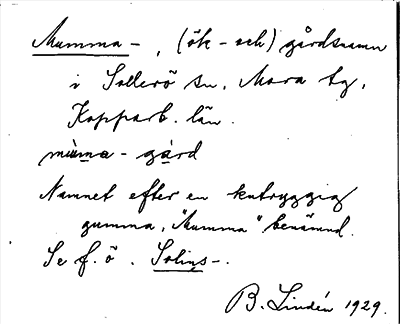 Mumma-, (ök- och) gårdsnamn
i Sollerö sn, Mora tg,
Kopparb. län.
mùma - gård
Namnet efter en kutryggig
gumma, "Mumma" benämnd.
Se f. ö. Solins-.
B. Lindén 1929.